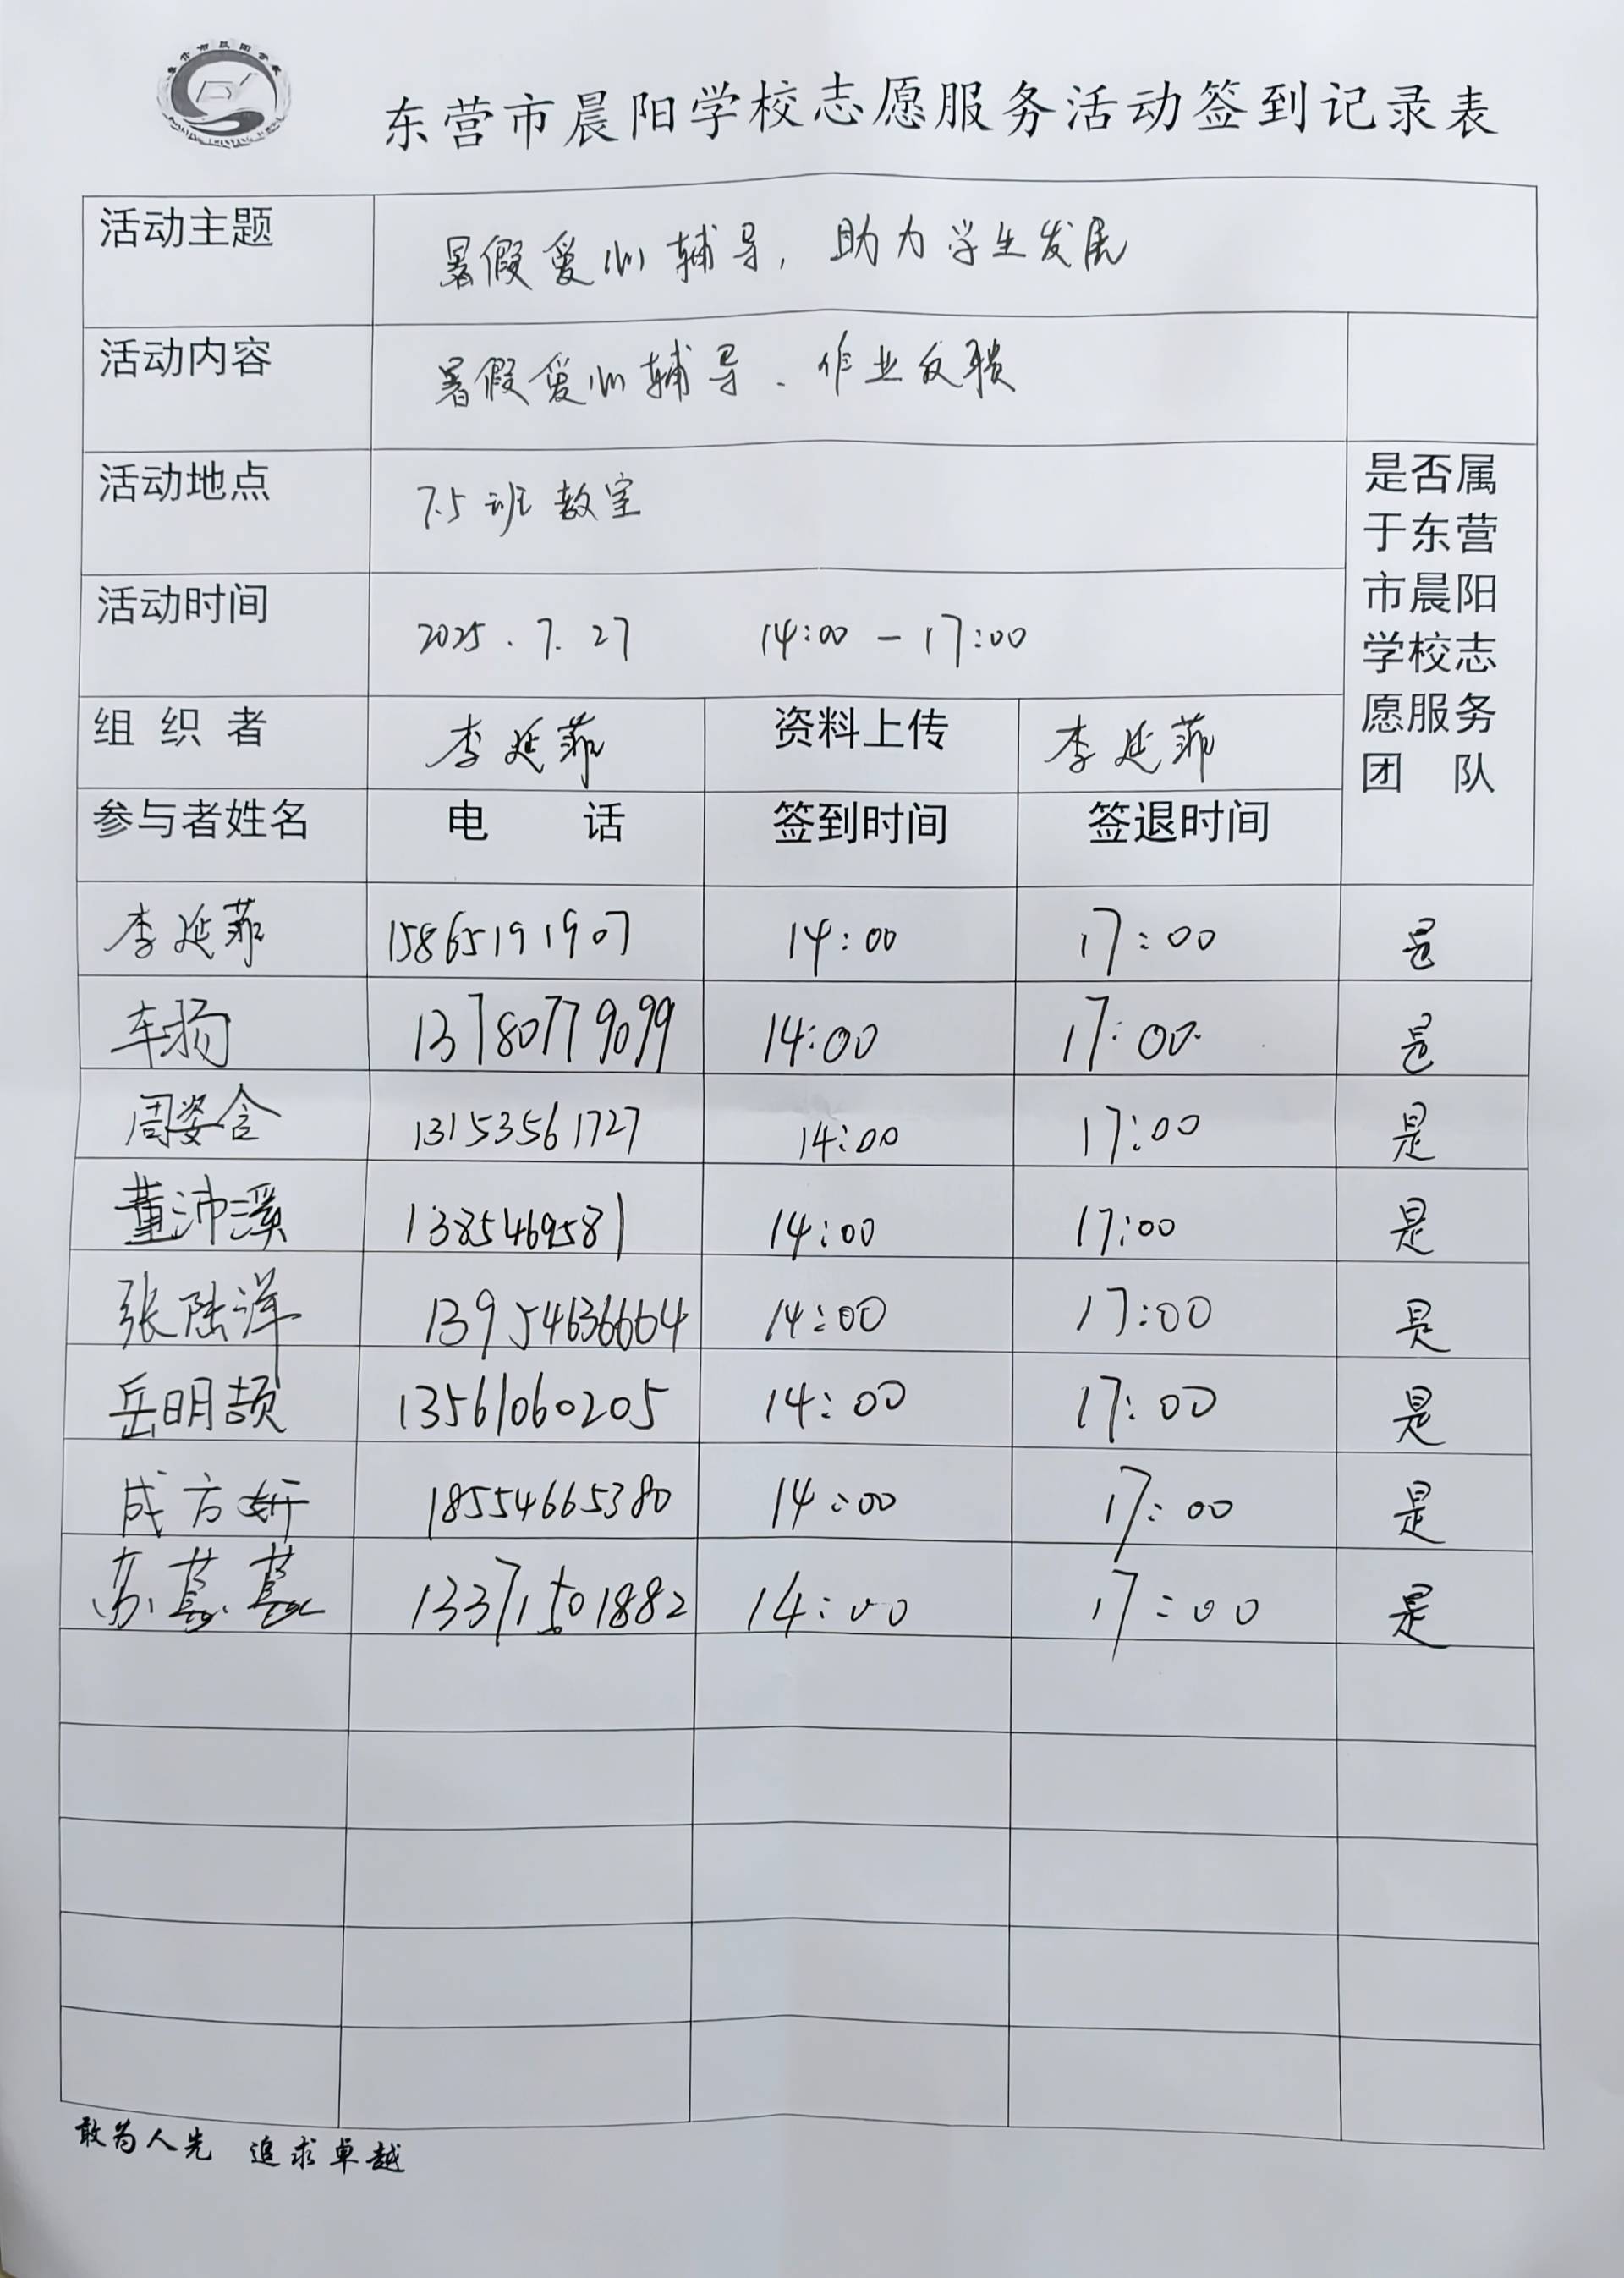 东营市晨阳学校志愿服务活动签到记录表
活动主题 暑假爱心辅导，助力学生发展
活动内容 暑假爱心辅导、作业反馈
活动地点 7.5班教室
活动时间 2025.7.27 14:00-17:00
是否属
于东营
市晨阳
学校志
愿服务
团 队
组 织 者 李延菲 资料上传 李延菲
参与者姓名 电 话 签到时间 签退时间
李延菲 15865191907 14:00 17:00 是
车扬 13780779099 14:00 17:00 是
周姿含 13153561727 14:00 17:00 是
董沛溪 1385469581 14:00 17:00 是
张陆洋 13954636664 14:00 17:00 是
岳明颉 13561060205 14:00 17:00 是
成方妍 18554665380 14:00 17:00 是
苏 13371501882 14:00 17:00 是
敢为人先 追求卓越